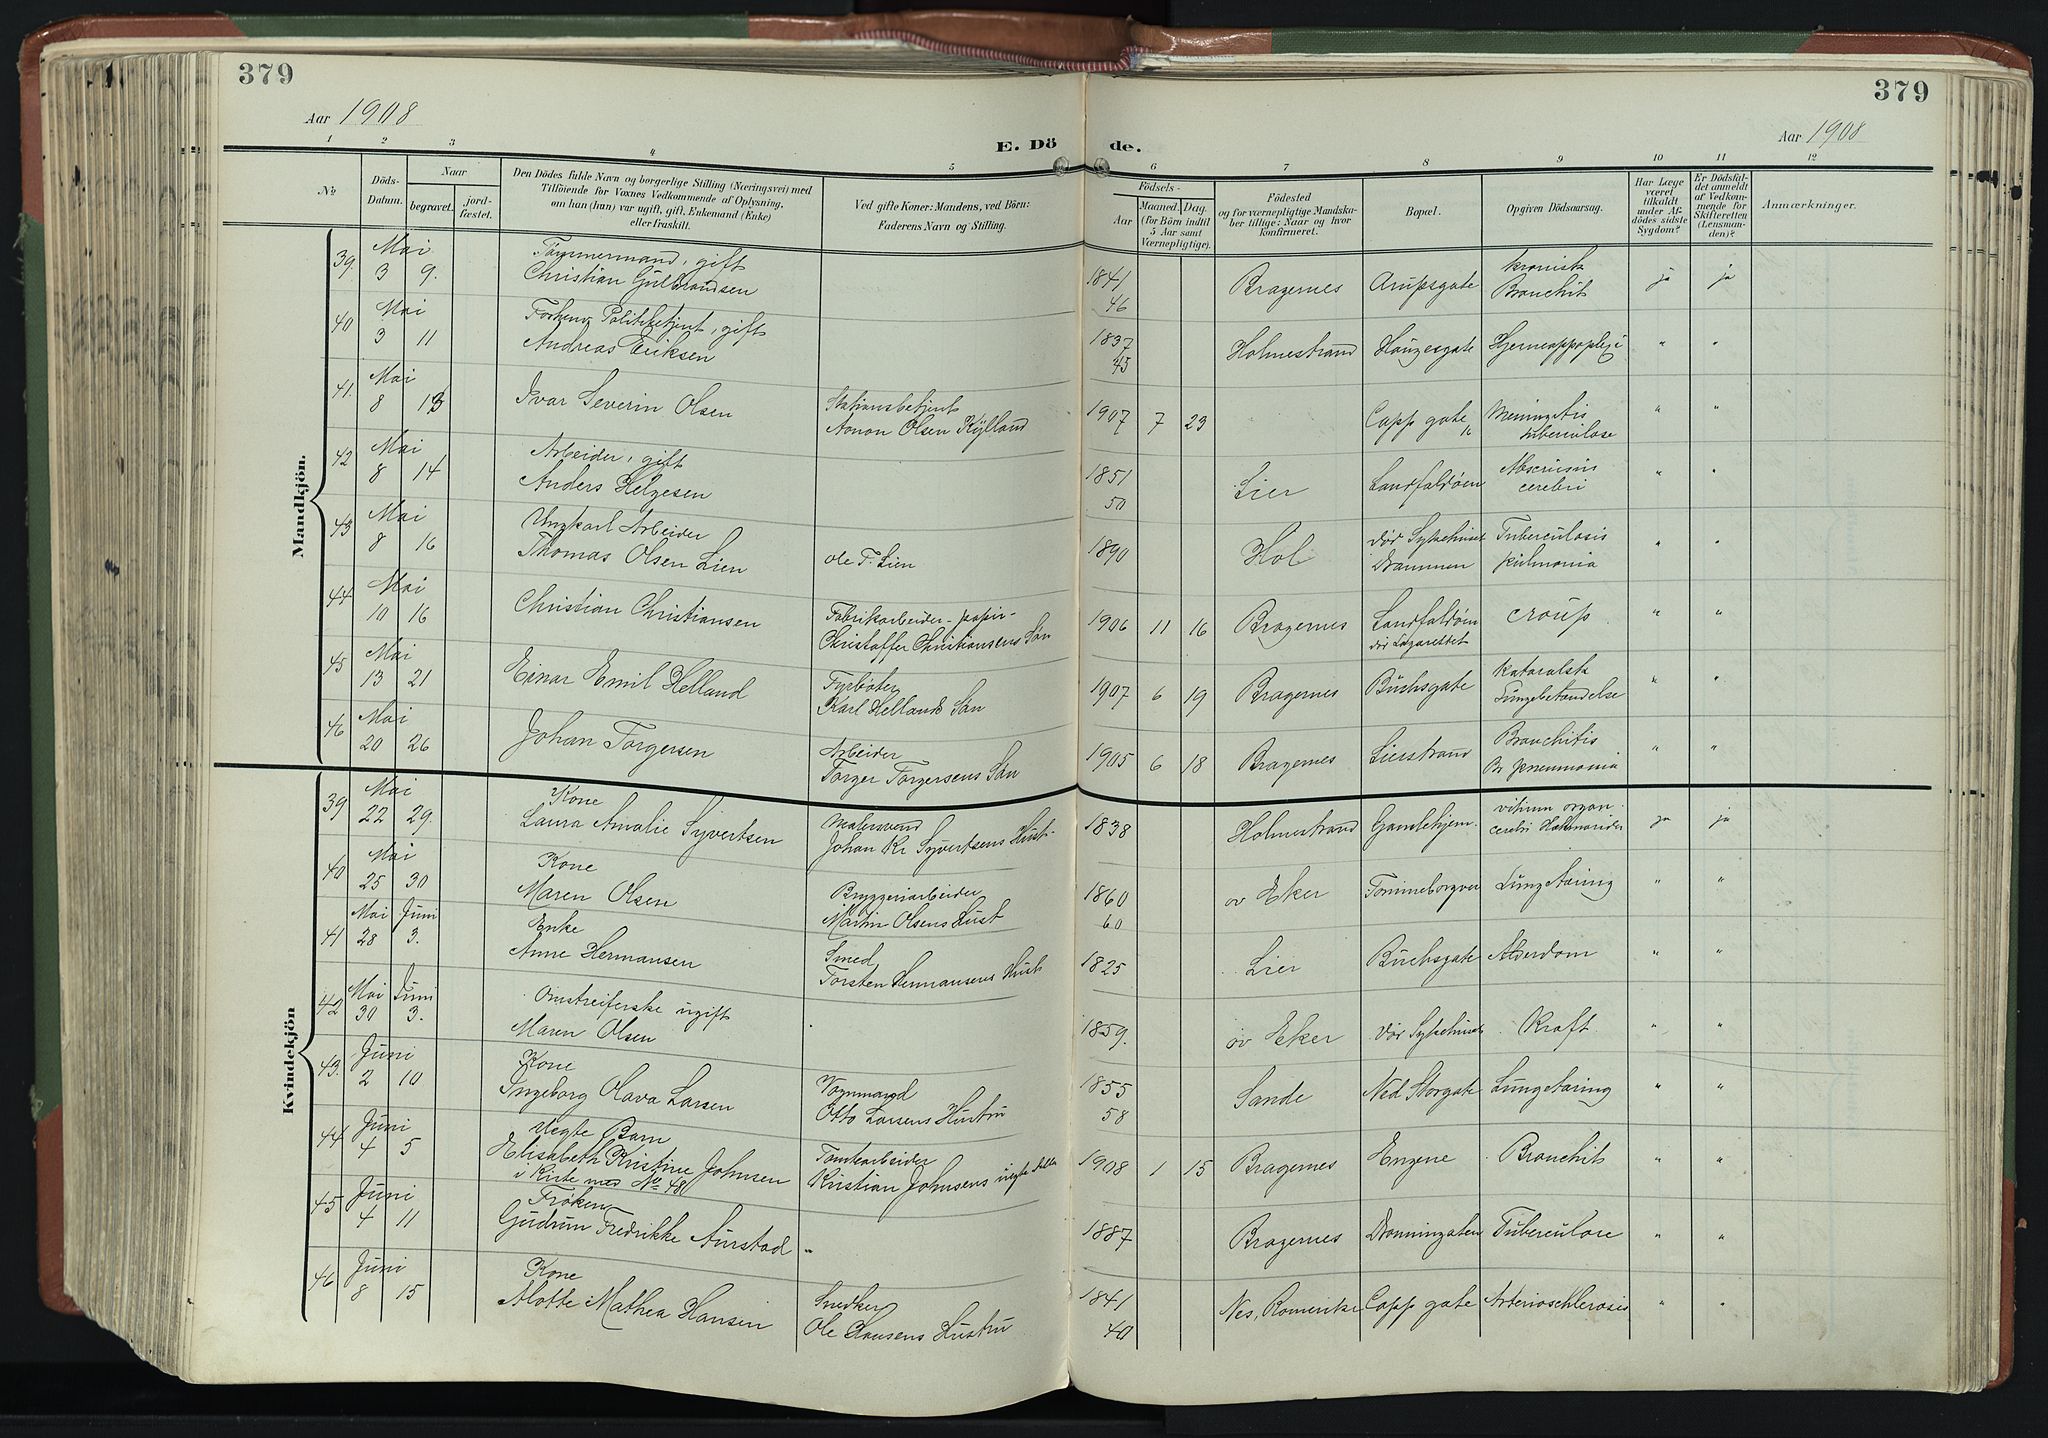 379
379
Aar 1908
Aar 1908
E. Dö
de.
1 2 3 4 5 6 7 8 9 10 11 12
No
Döds-
Datum.
Naar
begravet.
jord-
fæstet.
Den Dödes fulde Navn og borgerlige Stilling (Næringsvei) med
Tilföiende for Voxnes Vedkommende af Oplysning,
om han (hun) var ugift, gift, Enkemand (Enke)
eller fraskilt.
Ved gifte Koner: Mandens, ved Börn:
Faderens Navn og Stilling.
Födsels-
Aar
Maaned.
Dag.
(for Börn indtil
5 Aar samt
Værnepligtige).
Födested
og for værnepligtige Mandska-
ber tillige: Naar og hvor
konfirmeret.
Bopæl.
Opgiven Dödsaarsag.
Har Læge
været
tilkaldt
under Af-
dödes sidste
Sygdom?
Er Dödsfal-
det anmeldt
af Vedkom-
mende for
Skifteretten
(Lensman-
den)?
Anmærkninger.
Mandkjön.
39. Mai Tömmermand, gift kronisk
3 9. Christian Gulbrandsen 1841 Bragernes Arupsgate Bronchit ja ja
46
40 Mai Forhenv Politibetjent, gift
3 11 Andreas Eriksen 1837 Holmestrand Haugesgate Hjerneappoplexi " "
45
41. Mai Stationsbetjent
8 13 Ivar Severin Olsen Olsen Kylland 1907 7 23 Capp gate Meningitis " "
tuberculose
42 Mai Arbeider, gift
8 14 Anders Helgesen 1851 Lier Landfaldöen cerebri " "
50
43 Mai Ungkarl Arbeider död Sykehuset Tuberculosis
8 16 Thomas Olsen Lien Ole F. Lien 1890 Hol Drammen pulmonia " "
44 Mai Fabrikarbeider - papir-
10 16 Christian Christiansen Christoffer Christiansens Sön 1906 11 16 Bragernes Landfaldöen croup " "
död Lazarettet
45 Mai Fyrböter kataralsk
13 21 Einar Emil Helland Karl Hellands Sön 1907 6 19 Bragernes Buchsgate Lungebetændelse " "
46 Mai Arbeider Bronchitis
20 26 Johan Torgersen Torger Torgersens Sön 1905 6 18 Bragernes Lierstrand Br pneumonia " "
Kvindekjön
39 Mai Kone Malersvend vitium organ.
22 29. Laura Amalie Syvertsen Johan Kr Syvertsens Hust. 1838 Holmestrand Gamlehjem. cerebri ja ja
40 Mai Kone Bryggeriarbeider
25 30 Maren Olsen Martin Olsens Hust 1860 öv Eker Lungetæring " "
60
41 Mai Juni Enke Smed
28 3. Anne Hermansen Torsten Hermansens Hust 1825 Lier Buchsgate Alderdom " "
42 Mai Juni Omstreiferske ugift
30 3. Maren Olsen 1859. öv Eker död Sykehuset Kræft. " "
43. Juni Kone Vognmand
2 10 Ingeborg Olava Larsen Otto Larsens Hustru 1855 Sande Ned Storgate Lungetæring " "
58
44 Juni uegte Barn Tomtearbeider
4 5 Elisabeth Kristine Johnsen Kristian Johnsens uegte Datter 1908 1 15 Bragernes Engene Bronchit " "
i Kiste med No 48
45 Juni Fröken
4 11 Gudrun Fredrikke Aurstad " 1887 Bragernes Dronningaten Tuberculose " "
46 Juni Kone Snedker
8 15 Alotte Mathea Hansen Ole Hansens Hustru 1841 Nes, Romerike Capp gate Arterioschlerosis " "
40